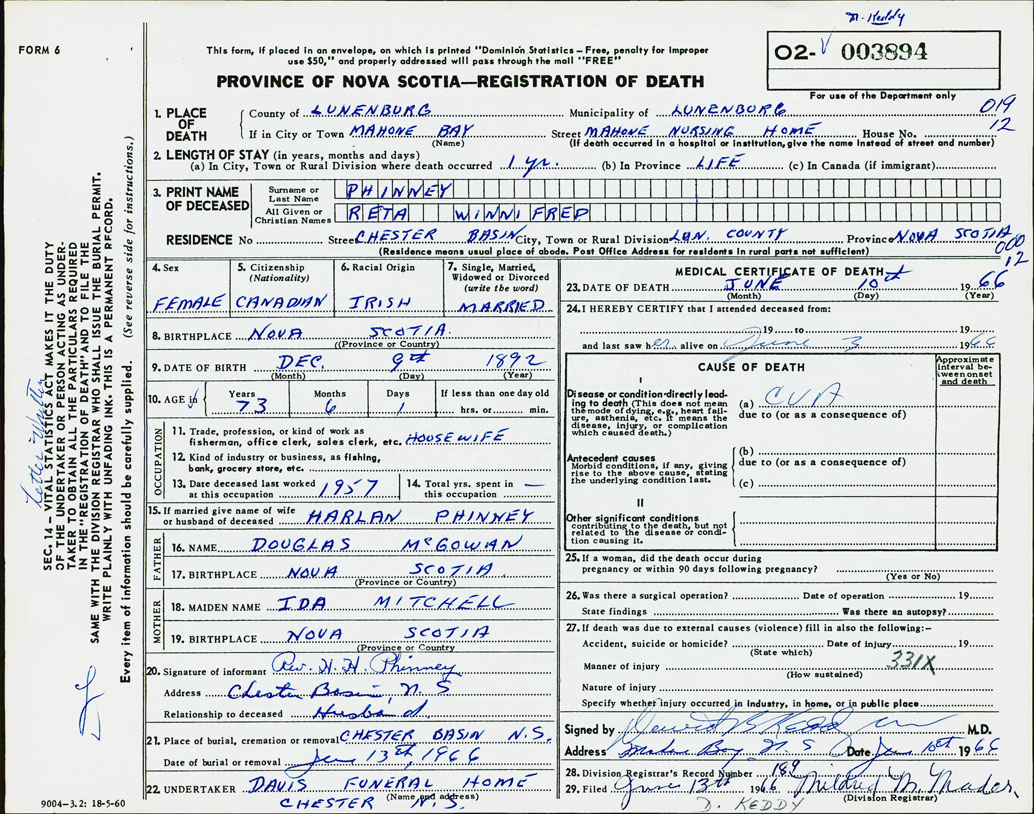 D. Keddy
FORM 6
This form, if placed in an envelope, on which is printed "Dominion Statistics – Free, penalty for improper
use $50," and properly addressed will pass through the mail "FREE"
O2- V 003894
PROVINCE OF NOVA SCOTIA—REGISTRATION OF DEATH
For use of the Department only
1. PLACE OF DEATH
County of LUNENBURG Municipality of LUNENBURG 019
If in City or Town MAHONE BAY Street MAHONE NURSING HOME House No. 12
(Name) (If death occurred in a hospital or institution, give the name instead of street and number)
2. LENGTH OF STAY (in years, months and days)
(a) In City, Town or Rural Division where death occurred 1 yr. (b) In Province LIFE (c) In Canada (if immigrant)
3. PRINT NAME OF DECEASED
Surname or Last Name PHINNEY
All Given or Christian Names RETA WINNIFRED
RESIDENCE No Street CHESTER BASIN City, Town or Rural Division LUN. COUNTY Province NOVA SCOTIA
(Residence means usual place of abode. Post Office Address for residents in rural parts not sufficient)
000
12
4. Sex FEMALE
5. Citizenship (Nationality) CANADIAN
6. Racial Origin IRISH
7. Single, Married, Widowed or Divorced (write the word) MARRIED
8. BIRTHPLACE NOVA SCOTIA
(Province or Country)
9. DATE OF BIRTH DEC. 9th 1892
(Month) (Day) (Year)
10. AGE Years 73 Months 6 Days 1 If less than one day old hrs. or min.
OCCUPATION
11. Trade, profession, or kind of work as
fisherman, office clerk, sales clerk, etc. HOUSEWIFE
12. Kind of industry or business, as fishing,
bank, grocery store, etc.
13. Date deceased last worked at this occupation 1957
14. Total yrs. spent in this occupation —
15. If married give name of wife or husband of deceased HARLAN PHINNEY
FATHER
16. NAME DOUGLAS McGOWAN
17. BIRTHPLACE NOVA SCOTIA
(Province or Country)
MOTHER
18. MAIDEN NAME IDA MITCHELL
19. BIRTHPLACE NOVA SCOTIA
(Province or Country)
20. Signature of informant Rev. H. H. Phinney
Address Chester Basin, N. S
Relationship to deceased Husband
21. Place of burial, cremation or removal CHESTER BASIN N.S.
Date of burial or removal June 13th, 1966
22. UNDERTAKER DAVIS FUNERAL HOME
(Name and address)
CHESTER N.S.
9004–3.2: 18-5-60
MEDICAL CERTIFICATE OF DEATH
23. DATE OF DEATH JUNE 10th 1966
(Month) (Day) (Year)
24. I HEREBY CERTIFY that I attended deceased from:
19 to 19
and last saw her alive on June 3 1966
CAUSE OF DEATH
Approximate interval between onset and death
I
Disease or condition directly leading to death (This does not mean the mode of dying, e.g., heart failure, asthenia, etc. It means the disease, injury, or complication which caused death.)
(a) CVA
due to (or as a consequence of)
Antecedent causes
Morbid conditions, if any, giving rise to the above cause, stating the underlying condition last.
(b)
due to (or as a consequence of)
(c)
II
Other significant conditions
contributing to the death, but not related to the disease or condition causing it.
25. If a woman, did the death occur during
pregnancy or within 90 days following pregnancy?
(Yes or No)
26. Was there a surgical operation? Date of operation 19
State findings Was there an autopsy?
27. If death was due to external causes (violence) fill in also the following:–
Accident, suicide or homicide? Date of injury 19
(State which)
331X
Manner of injury
(How sustained)
Nature of injury
Specify whether injury occurred in industry, in home, or in public place
Signed by M.D.
Address Bay, N. S Date June 10th 1966
28. Division Registrar's Record Number 189
29. Filed June 13th 1966 Mildred M. Mader
(Division Registrar)
D. KEDDY
Letter Written
SEC. 14 – VITAL STATISTICS ACT MAKES IT THE DUTY
OF THE UNDERTAKER OR PERSON ACTING AS UNDER-
TAKER TO OBTAIN ALL THE PARTICULARS REQUIRED
IN THE "REGISTRATION OF DEATH" AND TO FILE THE
SAME WITH THE DIVISION REGISTRAR WHO SHALL ISSUE THE BURIAL PERMIT.
WRITE PLAINLY WITH UNFADING INK. THIS IS A PERMANENT RECORD.
Every item of information should be carefully supplied. (See reverse side for instructions.)